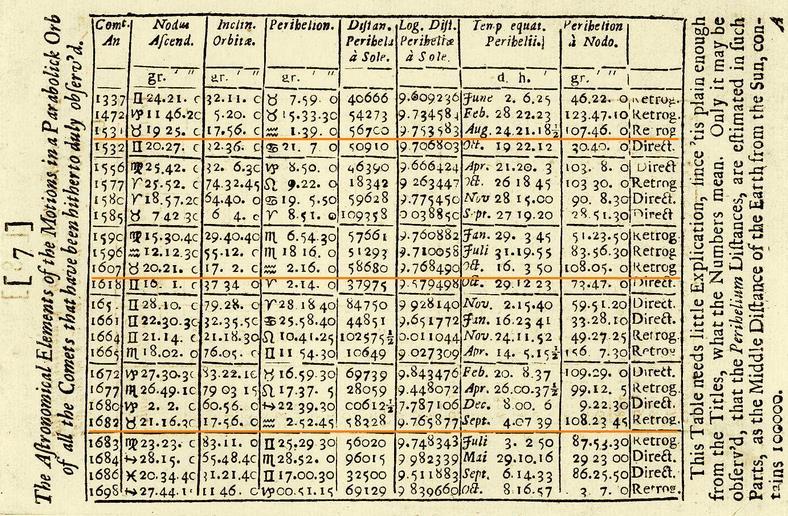 [ 7 ]
The Aſtronomical Elements of the Motions in a Parabolick Orb
of all the Comets that have been hitherto duly obſerv'd.
Comt. An | Nodus Aſcend. | Inclin. Orbitæ. | Perihelion. | Diſtan. Perihela à Sole. | Log. Diſt. Periheliæ à Sole. | Temp equat. Perihelii. | Perihelion à Nodo.
gr. ' " | gr. ' " | gr. ' " | d. h. ' | gr. ' "
1337 ♊ 24.21. 0 32.11. 0 ♉ 7.59. 0 40666 9.609236 June 2. 6.25 46.22. 0 Retrog.
1472 ♑ 11.46.20 5.20. 0 ♉ 15.33.30 54273 9.734584 Feb. 28 22.23 123.47.10 Retrog.
1531 ♉ 19 25. 0 17.56. 0 ♒ 1.39. 0 56700 9.753583 Aug. 24.21.18½ 107.46. 0 Re rog
1532 ♊ 20.27. 0 32.36. 0 ♋ 21. 7. 0 50910 9.706803 Oct. 19 22.12 30.40. 0 Direct.
1556 ♍ 25.42. 0 32. 6.30 ♑ 8.50. 0 46390 9.666424 Apr. 21.20. 3 103. 8. 0 Direct
1577 ♈ 25.52. 0 74.32.45 ♌ 9.22. 0 18342 9 263447 Oct. 26 18 45 103 30. 0 Retrog
1580 ♈ 18.57.20 64.40. 0 ♋ 19. 5.50 59628 9.775450 Nov 28 15.00 90. 8.30 Direct.
1585 ♉ 7 42 30 6 4. 0 ♈ 8.51. 0 109358 0 038850 Sept. 27 19.20 28.51.30 Direct.
1590 ♍ 15.30.40 29.40.40 ♏ 6.54.30 57661 9.760882 Jan. 29. 3 45 51.23.50 Retrog
1596 ♒ 12.12.30 55.12. 0 ♏ 18 16. 0 51293 9.710058 Juli 31.19.55 83.56.30 Retrog
1607 ♉ 20.21. 0 17. 2. 0 ♒ 2.16. 0 58680 9.768490 Oct. 16. 3 50 108.05. 0 Retrog
1618 ♊ 16. 1. 0 37 34. 0 ♈ 2.14. 0 37975 9.579498 Oct. 29.12 23 73.47. 0 Direct.
165 ♊ 28.10. 0 79.28. 0 ♈ 28.18 40 84750 9.928140 Nov. 2.15.40 59.51.20 Direct.
1661 ♊ 22.30.30 32.35.50 ♋ 25.58.40 44851 9.651772 Jan. 16.23 41 33.28.10 Direct.
1664 ♊ 21.14. 0 21.18.30 ♌ 10.41.25 102575½ 0.011044 Nov. 24.11.52 49.27.25 Retrog
1665 ♏ 18.02. 0 76.05. 0 ♊ 11 54.30 10649 9 027309 Apr. 14. 5.15½ 156. 7.30 Retrog
1672 ♑ 27.30.30 83.22.10 ♉ 16.59.30 69739 9.843476 Feb. 20. 8.37 109.29. 0 Direct.
1677 ♏ 26.49.10 79 03 15 ♌ 17.37. 5 28059 9.448072 Apr. 26.00.37½ 99.12. 5 Retrog
1680 ♑ 2. 2. 0 60.56. 0 ♐ 22 39.30 00612½ 7.787106 Dec. 8.00. 6 9.22.30 Direct.
1682 ♉ 21.16.30 17.56. 0 ♒ 2.52.45 58328 9.765877 Sept. 4.07 39 108.23 45 Retrog
1683 ♍ 23.23. 0 83.11. 0 ♊ 25.29 30 56020 9.748343 Juli 3. 2 50 87.53.30 Retrog
1684 ♐ 28.15. 0 65.48.40 ♏ 28.52. 0 96015 9 982339 Mai 29.10.16 29 23 00 Direct
1686 ♓ 20.34.40 31.21.40 ♊ 17.00.30 32500 9.511883 Sept. 6.14.33 86.25.50 Direct.
1698 ♐ 27.44.1 11 46. 0 ♑ 00.51.15 69129 9 839660 Oct. 8.16.57 3. 7. 0 Retrog.
This Table needs little Explication, ſince 'tis plain enough
from the Titles, what the Numbers mean. Only it may be
obſerv'd, that the Perihelium Diſtances, are eſtimated in ſuch
Parts, as the Middle Diſtance of the Earth from the Sun, con-
tains 100000.
A